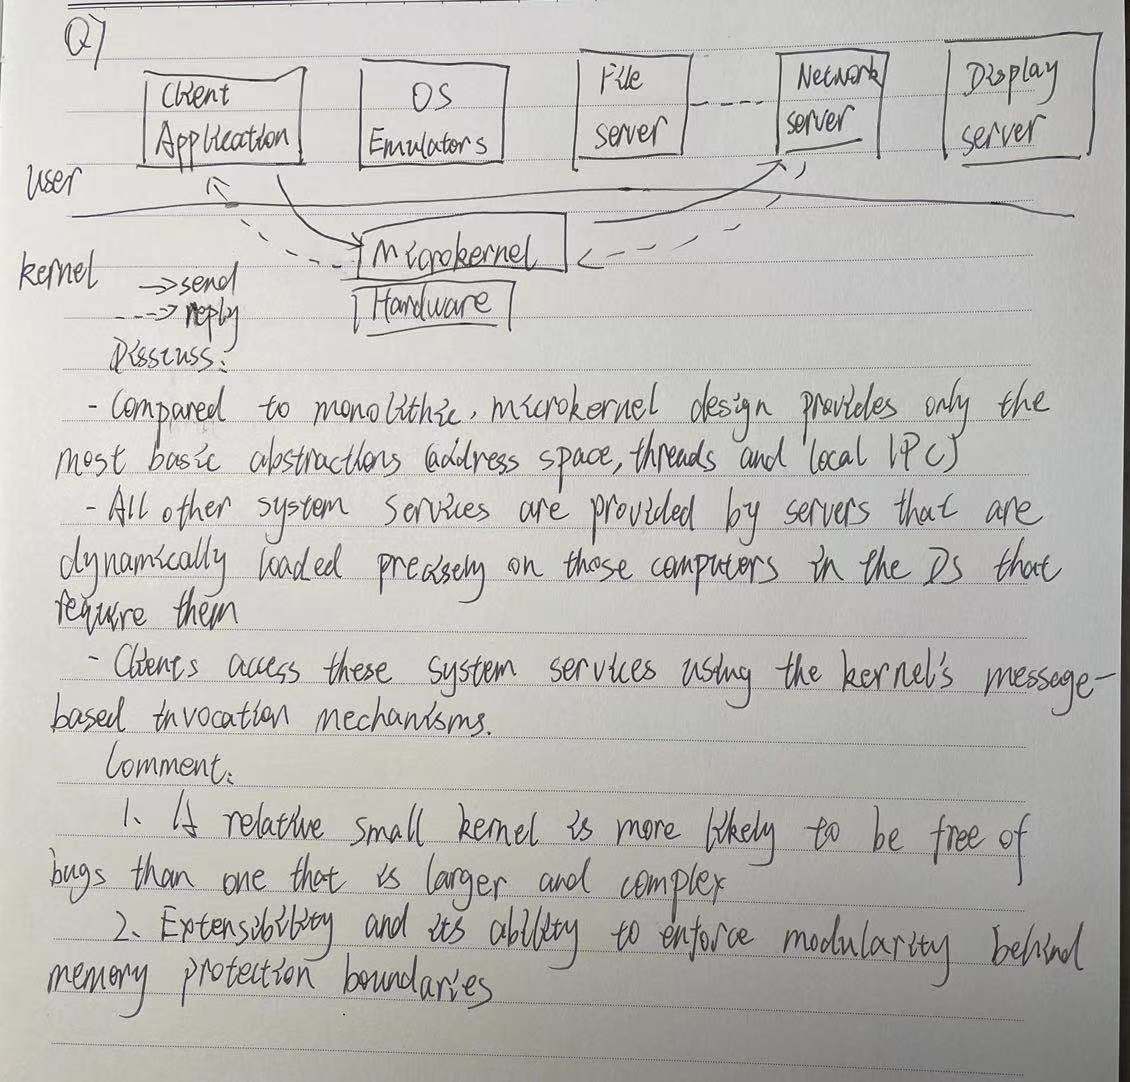 Q7
Client Application
OS Emulators
File server
Network server
Display server
user
Microkernel
kernel
send
Hardware
reply
Disscuss:
- Compared to monolithic, microkernel design provides only the
most basic abstractions (address space, threads and local IPC)
- All other system services are provided by servers that are
dynamically loaded precisely on those computers in the DS that
require them
- Clients access these system services using the kernel's message-
based invocation mechanisms.
Comment:
1. A relative small kernel is more likely to be free of
bugs than one that is larger and complex
2. Extensibility and its ability to enforce modularity behind
memory protection boundaries